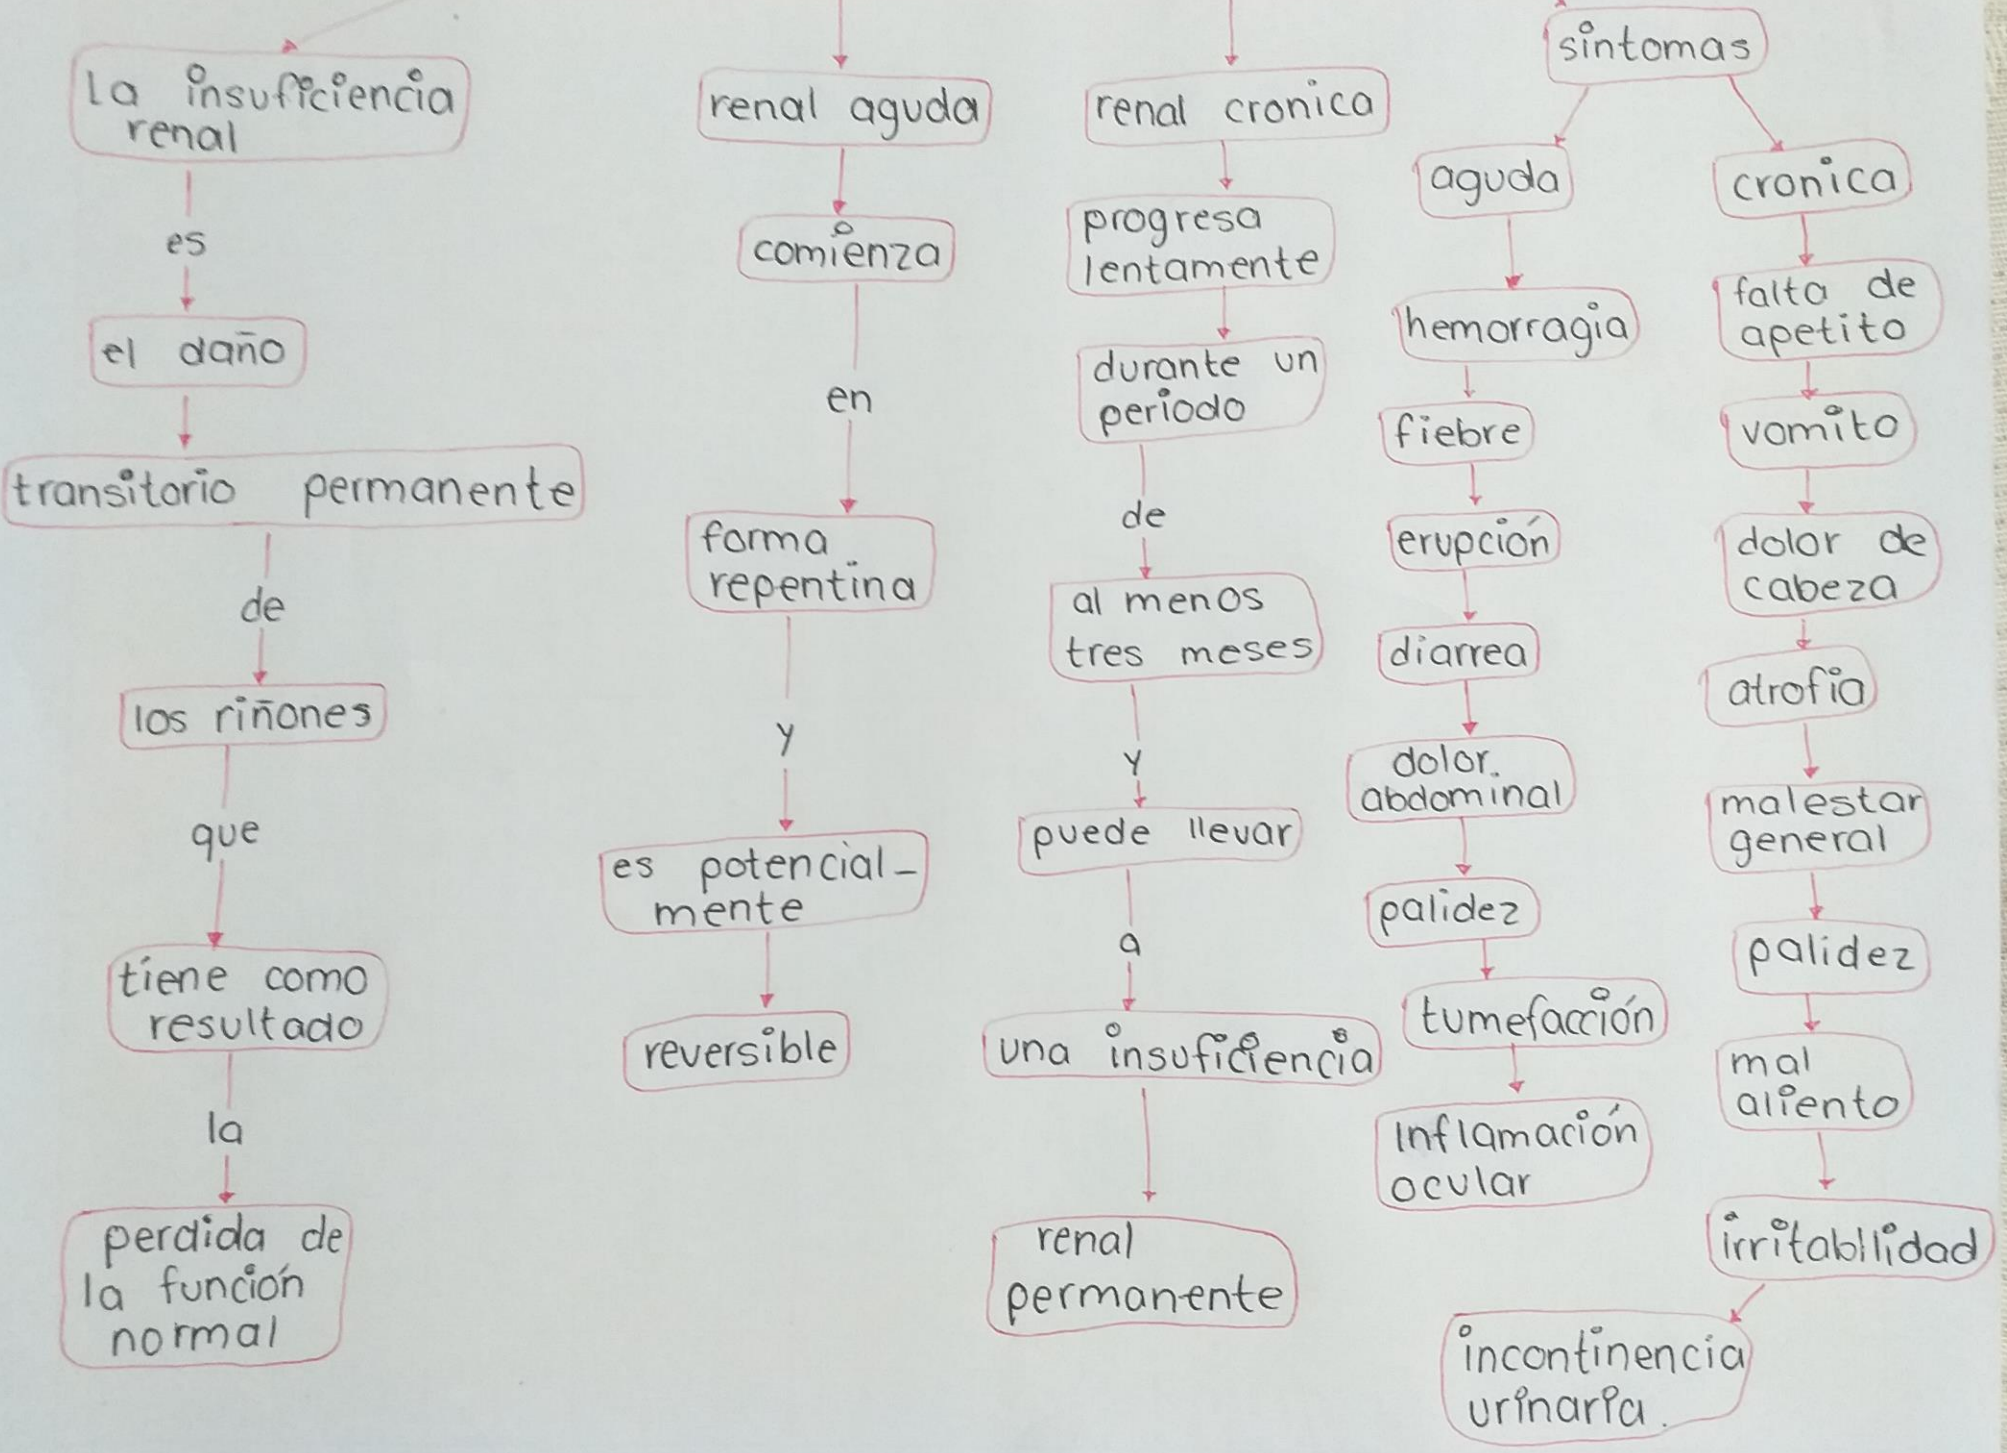 la insuficiencia
renal
es
el daño
transitorio permanente
de
los riñones
que
tiene como
resultado
la
perdida de
la función
normal
renal aguda
comienza
en
forma
repentina
y
es potencial-
mente
reversible
renal cronica
progresa
lentamente
durante un
periodo
de
al menos
tres meses
y
puede llevar
a
una insuficiencia
renal
permanente
sintomas
aguda
hemorragia
fiebre
erupción
diarrea
dolor.
abdominal
palidez
tumefacción
inflamación
ocular
cronica
falta de
apetito
vomito
dolor de
cabeza
atrofia
malestar
general
palidez
mal
aliento
irritabilidad
incontinencia
urinaria.